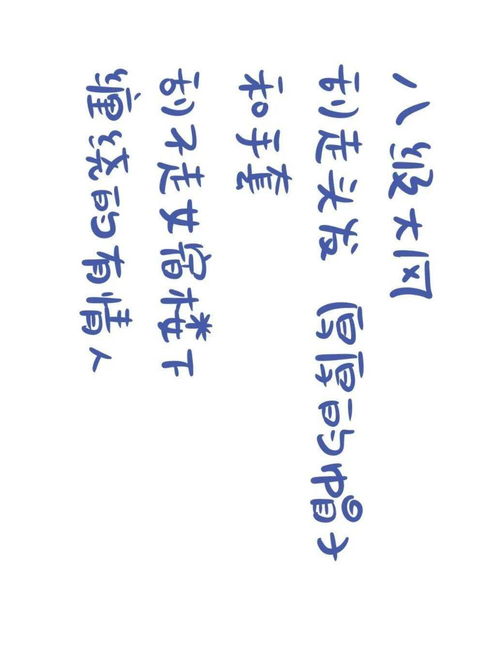 八级大风
刮走头发 厚厚的帽子
和手套
刮不走女宿楼下
缱绻的有情人